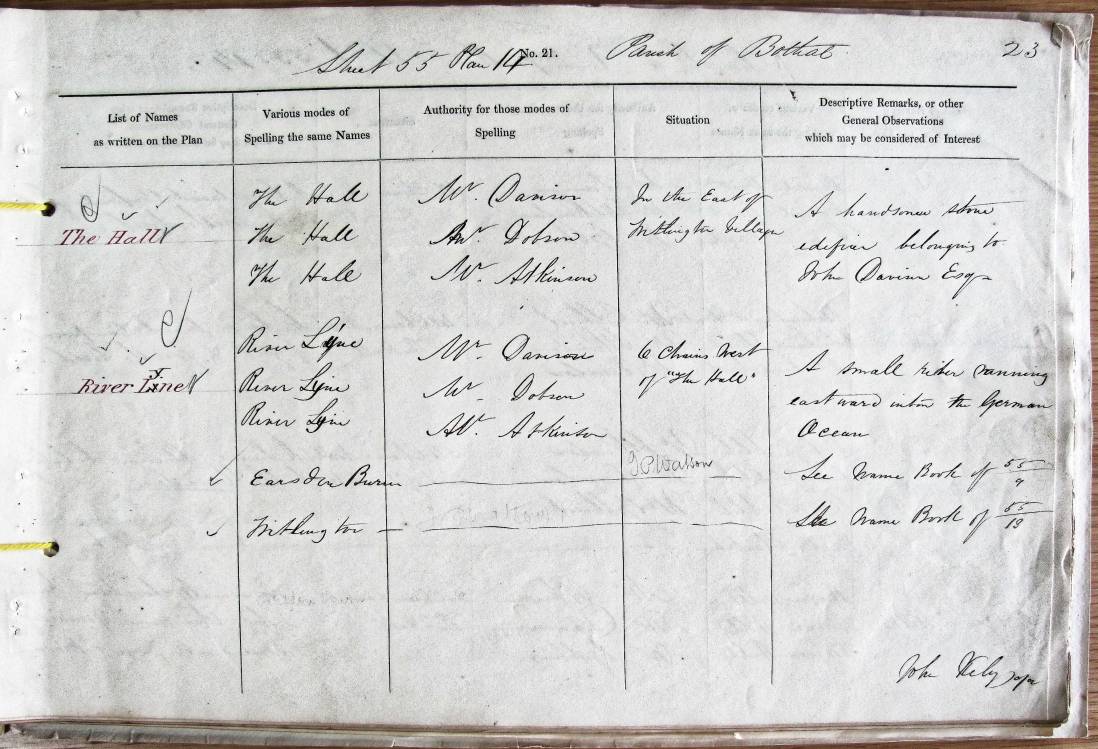 Sheet 55 Plan 14 No. 21. Parish of Bothal 23
List of Names
as written on the Plan
Various modes of
Spelling the same Names
Authority for those modes of
Spelling
Situation
Descriptive Remarks, or other
General Observations
which may be considered of Interest
The Hall
The Hall
The Hall
The Hall
Mr. Davison
Mr. Dobson
Mr. Atkinson
In the East of
Village
A handsome stone
edifice belonging to
John Davison Esqr
River Line
y
River Lyne
River Lyne
River Lyne
Mr. Davison
Mr. Dobson
Mr. Atkinson
6 Chains West
of "The Hall"
A small river running
eastward into the German
Ocean
Earsdon Burn
Watson
See Name Book of 55/9
See Name Book of 55/13
John